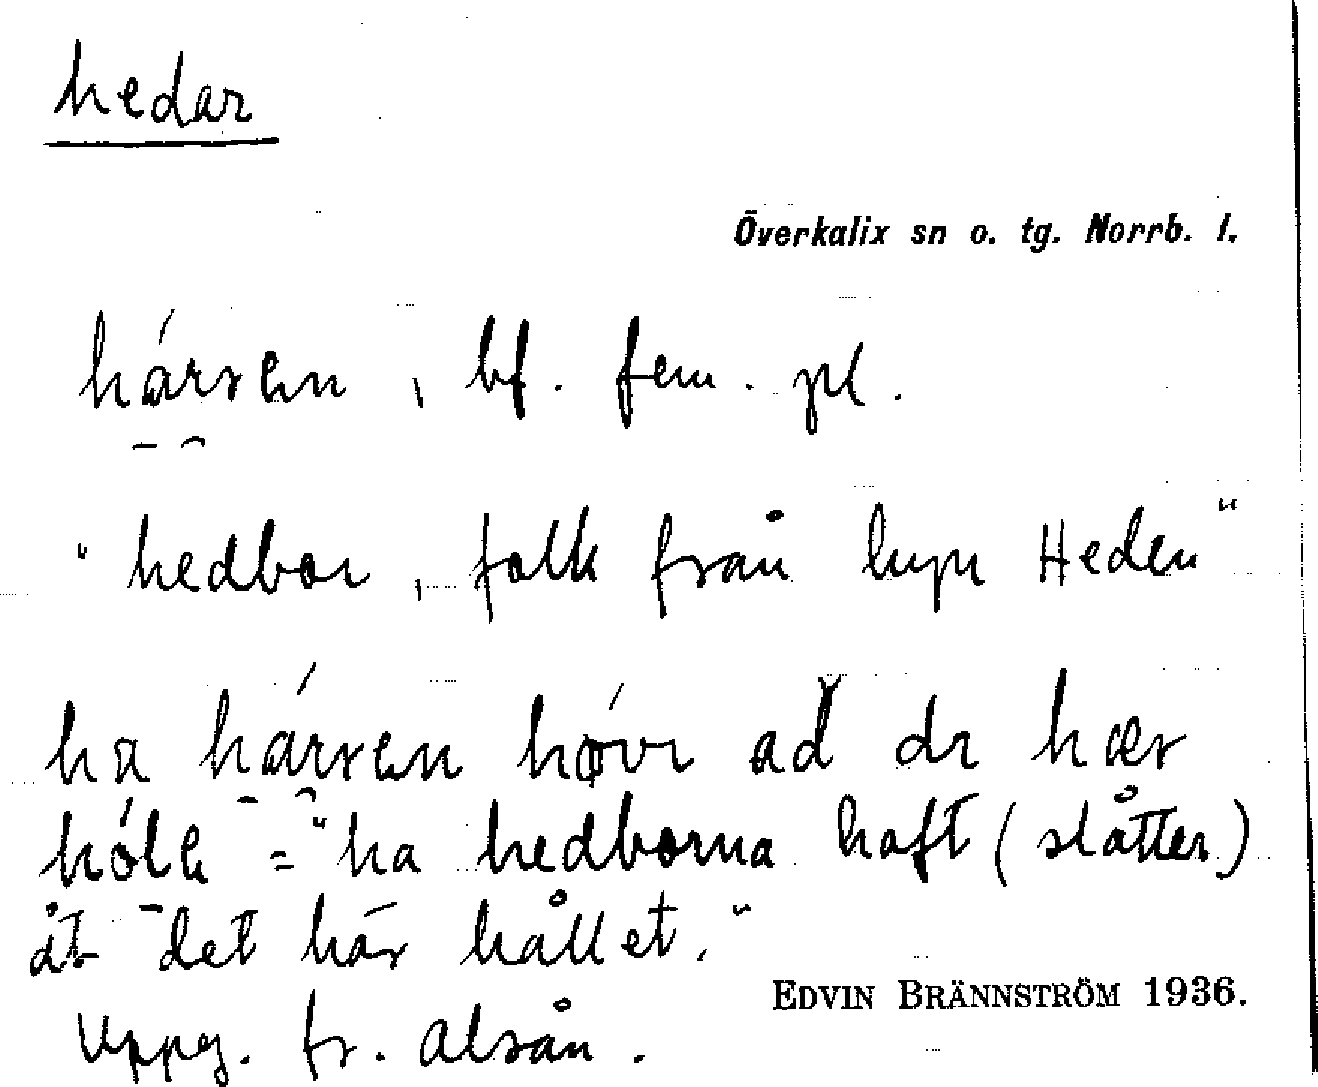 hedar
Överkalix sn o. tg. Norrb. l.
hársen, bf. fem. pl.
"hedbor, folk från byn Heden"
ha hársen høvı ad dı hær
hólı = "ha hedborna haft (slåtter)
åt det här hållet."
Uppg. fr. Alsån.
EDVIN BRÄNNSTRÖM 1936.